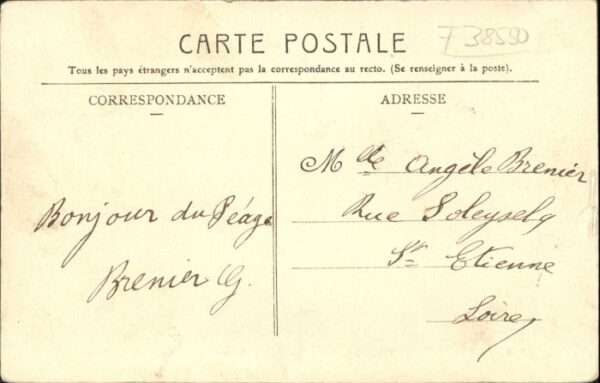 CARTE POSTALE
F 38550
Tous les pays étrangers n'acceptent pas la correspondance au recto. (Se renseigner à la poste).
CORRESPONDANCE
Bonjour du Péage
Brenier G.
ADRESSE
Mlle Angèle Brenier
Rue Soleysel
St Etienne
Loire